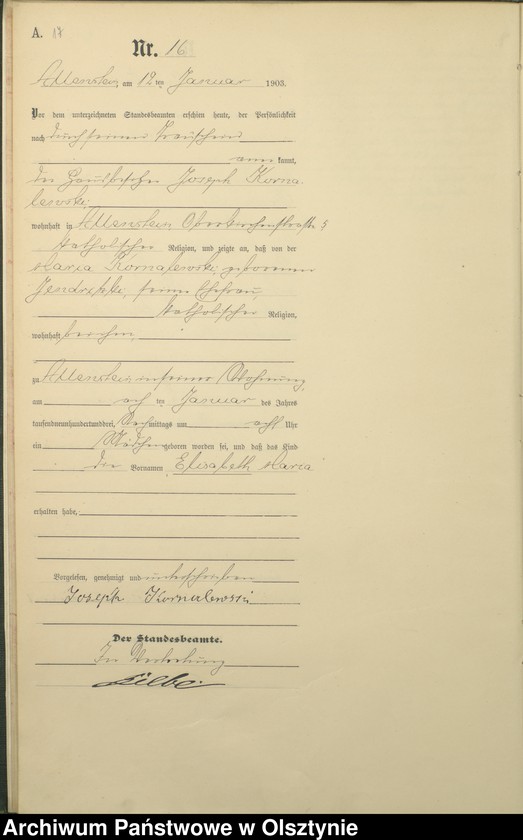 A. 17
Nr. 16
Allenstein, am 12ten Januar 1903.
Vor dem unterzeichneten Standesbeamten erschien heute, der Persönlichkeit
nach durch seinen Trauschein
aner kannt,
der Joseph Korna-
lewski
wohnhaft in Allenstein, Oberkirchenstraße 5
katholischer Religion, und zeigte an, daß von der
Maria Kornalewski, geborenen
seiner Ehefrau,
katholischer Religion,
wohnhaft bei ihm,
zu Allenstein, in seiner Wohnung,
am acht ten Januar des Jahres
tausendneunhundertunddrei, Nachmittags um acht Uhr
ein Mädchen geboren worden sei, und daß das Kind
die Vornamen Elisabeth Maria
erhalten habe.
Vorgelesen, genehmigt und unterschrieben
Joseph Kornalewski
Der Standesbeamte.
In Vertretung
Archiwum Państwowe w Olsztynie